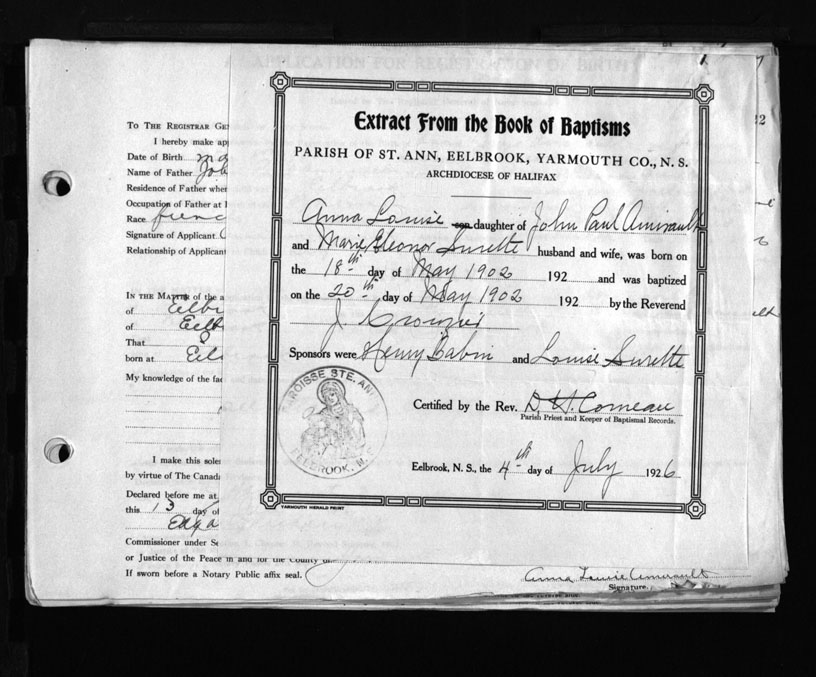 APPLICATION FOR REGISTRATION OF BIRTH
TO THE REGISTRAR GE
I hereby make ap
Date of Birth ma
Name of Father Joh
Residence of Father when
Occupation of Father at
Race frenc
Signature of Applicant
Relationship of Applicant
IN THE MATTER of the a
of Eelbr
of Eelb
That
born at Eel
My knowledge of the fac
I make this sole
by virtue of The Canad
Declared before me at
this 13 day of
Edga
Commissioner under Se
or Justice of the Peace in and for the County of
If sworn before a Notary Public affix seal.
Extract From the Book of Baptisms
PARISH OF ST. ANN, EELBROOK, YARMOUTH CO., N. S.
ARCHDIOCESE OF HALIFAX
Anna Louise son daughter of John Paul Amirault
and Marie Eleonor Surette husband and wife, was born on
the 18th day of May 1902 192 and was baptized
on the 20th day of May 1902 192 by the Reverend
J Crouzier
Sponsors were Henry Babin and Louise Surette
PAROISSE STE. ANN
EELBROOK, N.
Certified by the Rev. D. H. Comeau
Parish Priest and Keeper of Baptismal Records.
Eelbrook, N. S., the 4th day of July 1926
YARMOUTH HERALD PRINT
Anna Louise Amirault
Signature.